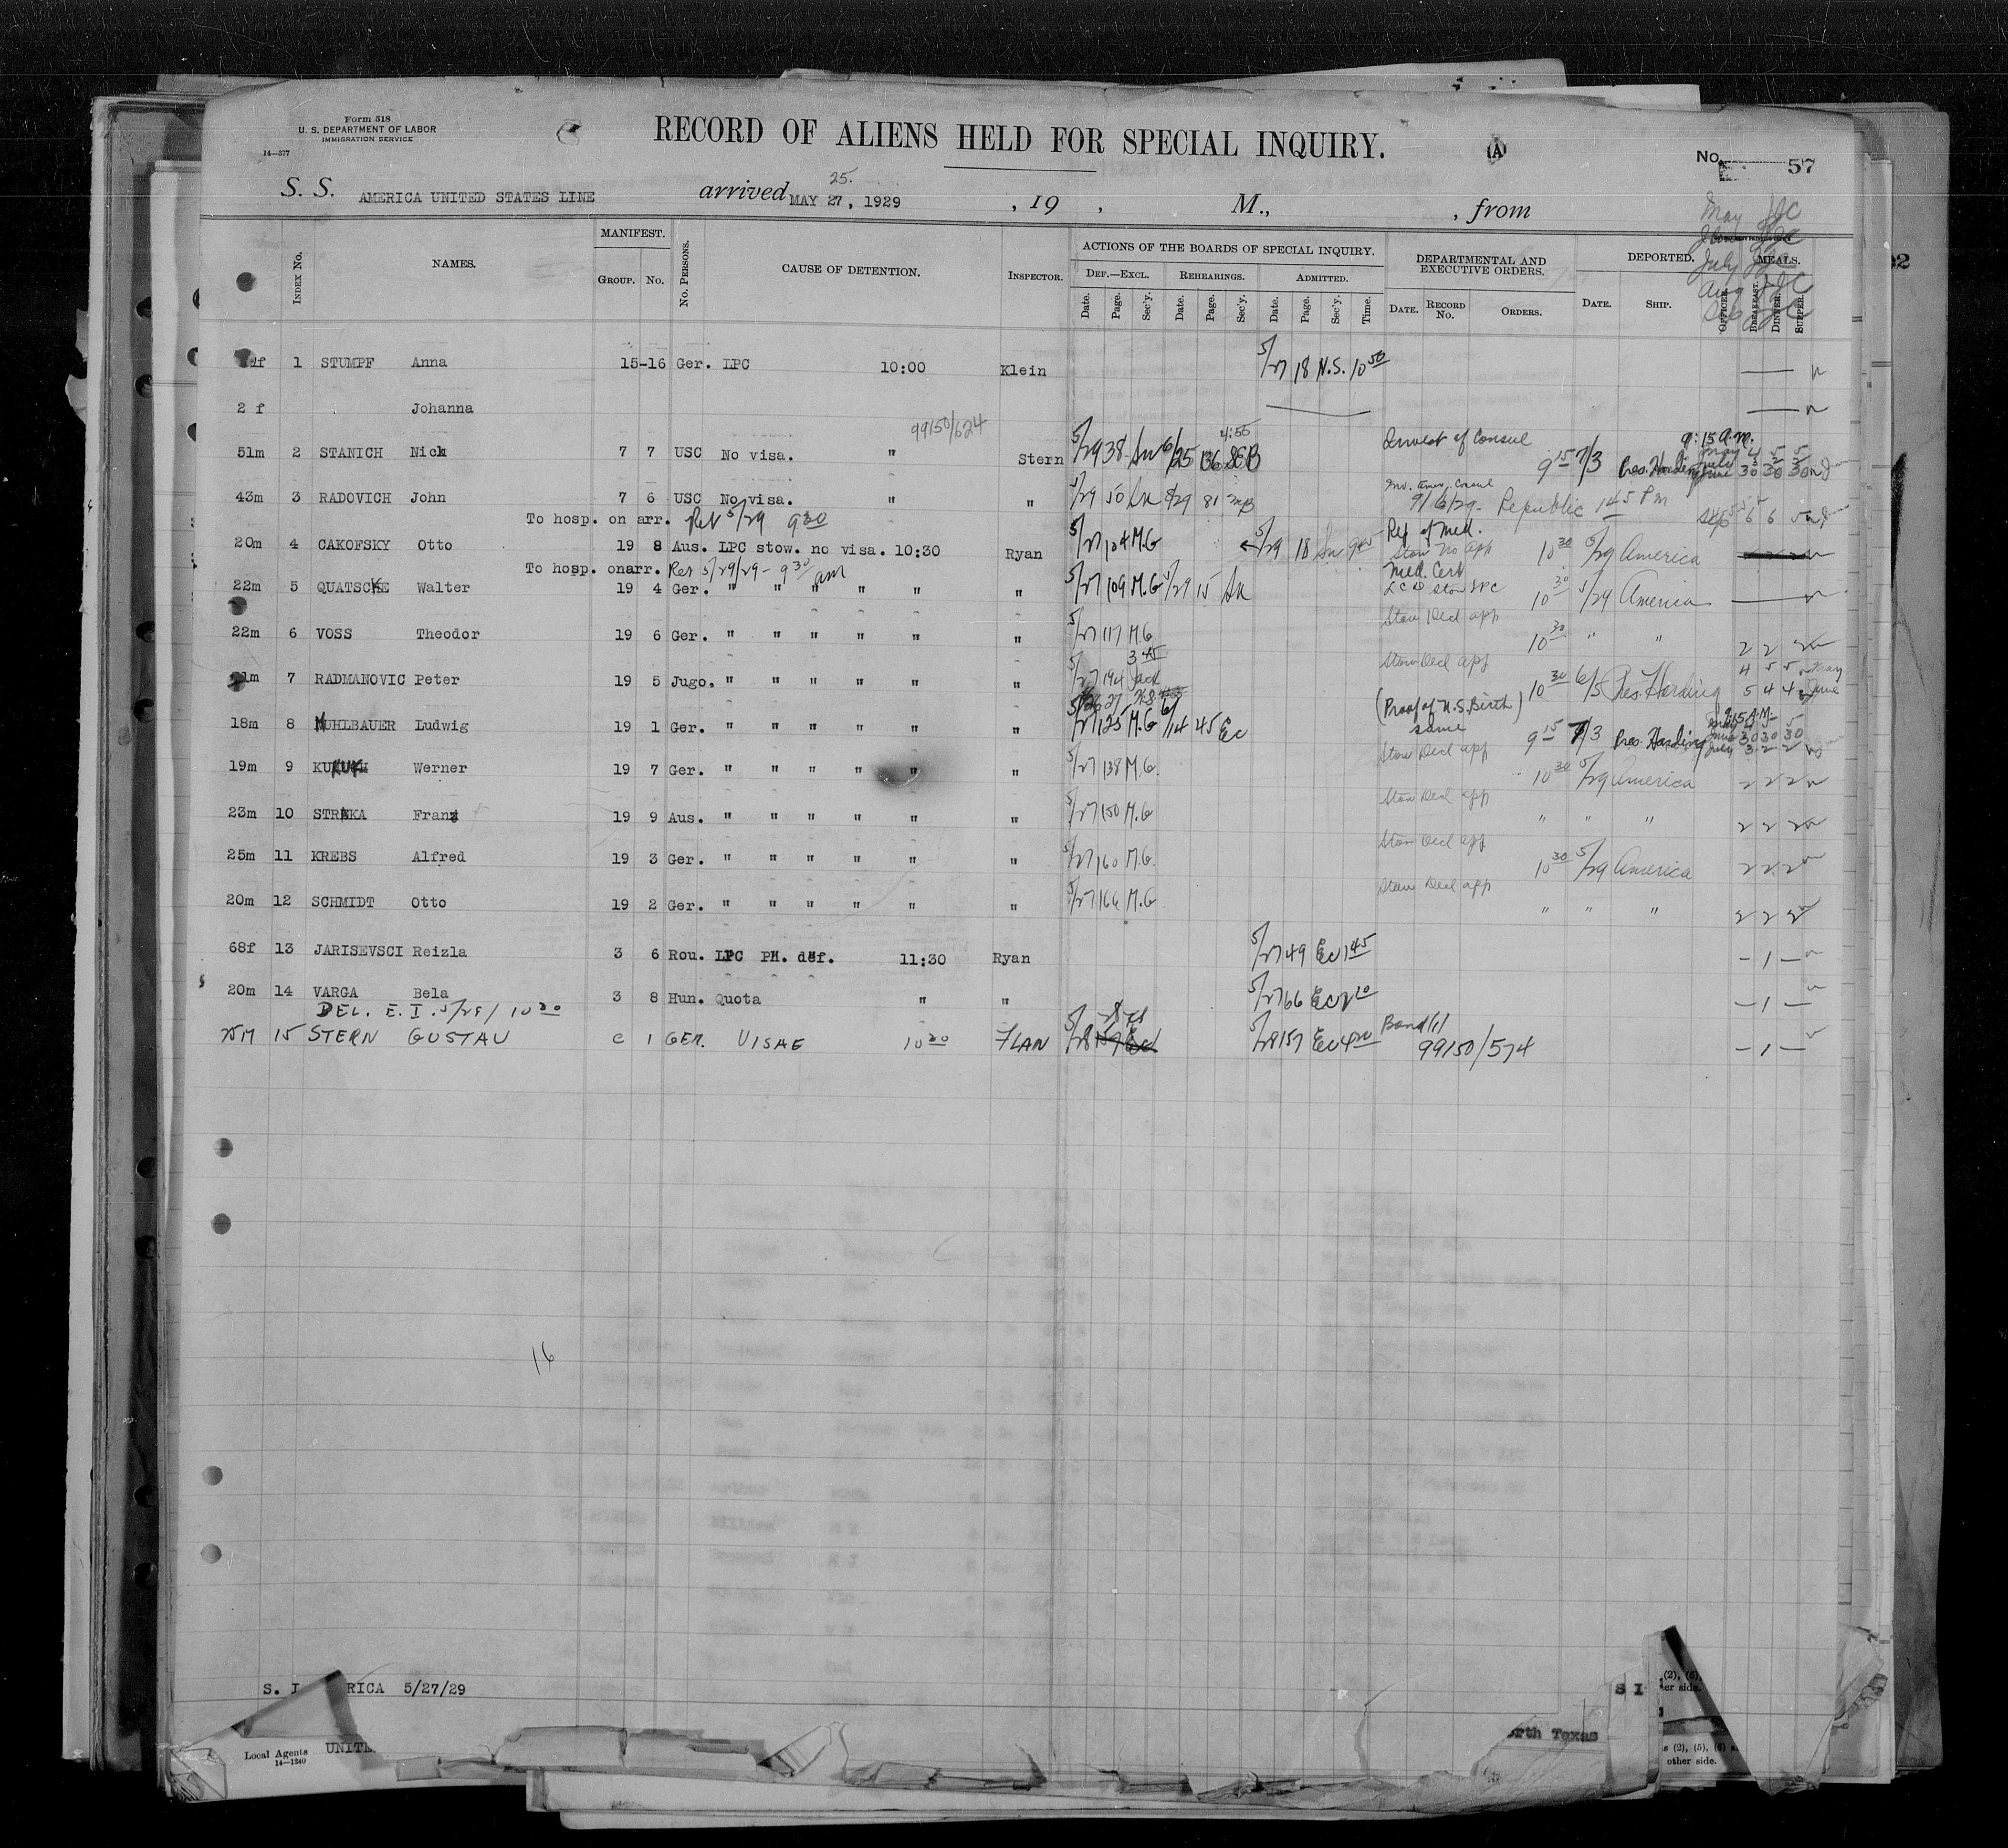 Form 518
U. S. DEPARTMENT OF LABOR
IMMIGRATION SERVICE
14—377
RECORD OF ALIENS HELD FOR SPECIAL INQUIRY.
(A)
No. 57
S. S. AMERICA UNITED STATES LINE arrived MAY 27, 1929 , 19 , M., , from
25.
May
July
Aug
INDEX No. NAMES. MANIFEST. No. PERSONS. CAUSE OF DETENTION. INSPECTOR. ACTIONS OF THE BOARDS OF SPECIAL INQUIRY. DEPARTMENTAL AND EXECUTIVE ORDERS. DEPORTED. MEALS.
GROUP. No. DEF.—EXCL. REHEARINGS. ADMITTED.
Date. Page. Sec'y. Date. Page. Sec'y. Date. Page. Sec'y. Time. DATE. RECORD No. ORDERS. DATE. SHIP. OFFICER. BREAKFAST. DINNER. SUPPER.
1 STUMPF Anna 15-16 Ger. LPC 10:00 Klein 5/27 18 N.S. 10 50
2 f Johanna
99150/624
4:50
9:15 A.M.
51m 2 STANICH Nick 7 7 USC No visa. " Stern 5/29 38 6/25 Invest of Consul 9 15 7/3 Pres. Harding June 30 30 30
43m 3 RADOVICH John 7 6 USC No visa. " 5/29 50 8/29 81 Inv. Amer. Consul 9/6/29- Republic 1 45 PM Sep 6 6 5
To hosp. on arr. Rel 5/29 9 30
20m 4 CAKOFSKY Otto 19 8 Aus. LPC stow. no visa. 10:30 Ryan 5/27 104 M.G 5/29 18 9 45 Rep of Med. Stow No app 10 30 5/29 America
To hosp. onarr. Rel 5/29/29- 9 30 am
22m 5 QUATSCKE Walter 19 4 Ger. " " " " " " 5/27 109 M.G 5/29 15 Med. Cert Stow LPC 10 30 5/29 America
22m 6 VOSS Theodor 19 6 Ger. " " " " " " 5/27 117 M.G Stow Decl app 10 30 " " 2 2 2
3 45
7 RADMANOVIC Peter 19 5 Jugo. " " " " " " 5/27 194 Stow Decl app 10 30 6/5 Pres. Harding 4 5 5 May
5 4 4 June
18m 8 MUHLBAUER Ludwig 19 1 Ger. " " " " " " 5/27 125 M.G 6/14 45 Ec (Proof of U.S. Birth) same 9 15 7/3 Pres. Harding 9:15 A.M. June 30 30 30
July 3 2 2
19m 9 Werner 19 7 Ger. " " " " " " 5/27 138 M.G. Stow Decl app 10 30 5/29 America 2 2 2
23m 10 STRAKA Franz 19 9 Aus. " " " " " " 5/27 150 M.G Stow Decl app " " " 2 2 2
25m 11 KREBS Alfred 19 3 Ger. " " " " " " 5/27 160 M.G. Stow Decl app 10 30 5/29 America 2 2 2
20m 12 SCHMIDT Otto 19 2 Ger. " " " " " " 5/27 166 M.G. Stow Decl app " " " 2 2 2
68f 13 JARISEVSCI Reizla 3 6 Rou. LPC PH. def. 11:30 Ryan 5/27 49 Ec 1 45 — 1 —
20m 14 VARGA Bela 3 8 Hun. Quota " " 5/27 66 Ec 2 10 — 1 —
DEL. E. I. 5/28/ 10 20
25M 15 STERN GUSTAV C 1 GER. VISAE 10 20 FLAN 5/28 5/28 157 Ec 4 20 Bond (1) 99150/574 — 1 —
16
S. I RICA 5/27/29
S I
orth Texas
Local Agents UNITE
14—1240
(2), (5),
er side.
s (2), (5), (6) a
other side.